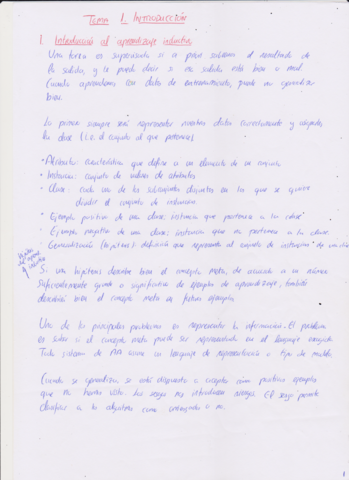 Tema 1. INTRODUCCIÓN
1. Introducción al aprendizaje inductivo
Una tarea es supervisada si a priori sabemos el resultado de
la salida, y te puede decir si esa salida está bien o mal.
Cuando aprendemos con datos de entrenamiento, puede no generalizar
bien.
Lo primero siempre será representar nuestros datos correctamente y
la clase (i.e. el conjunto al que pertenece)
· Atributo: característica que define a un elemento de un conjunto
· Instancia: conjunto de valores de atributos
· Clase: cada uno de los subconjuntos disjuntos en los que se quiere
dividir el conjunto de instancias
· Ejemplo positivo de una clase: instancia que pertenece a la clase
· Ejemplo negativo de una clase: instancia que no pertenece a la clase.
· Generalización (hipótesis): definición que representa al conjunto de instancias de una clase
Si una hipótesis describe bien el concepto meta, de acuerdo a un número
suficientemente grande o significativo de ejemplos de aprendizaje, también
describirá bien el concepto meta en futuros ejemplos
Uno de los principales problemas es representar la información. El problema
es saber si el concepto meta puede ser representado en el lenguaje escogido
Todo sistema de AA tiene un lenguaje de representación o tipo de modelo
Cuando se aprende, se está dispuesto a aceptar como positivos ejemplos
que no hemos visto. Los sesgos nos introducen sesgos. El sesgo permite
clasificar a los algoritmos como o no.
1